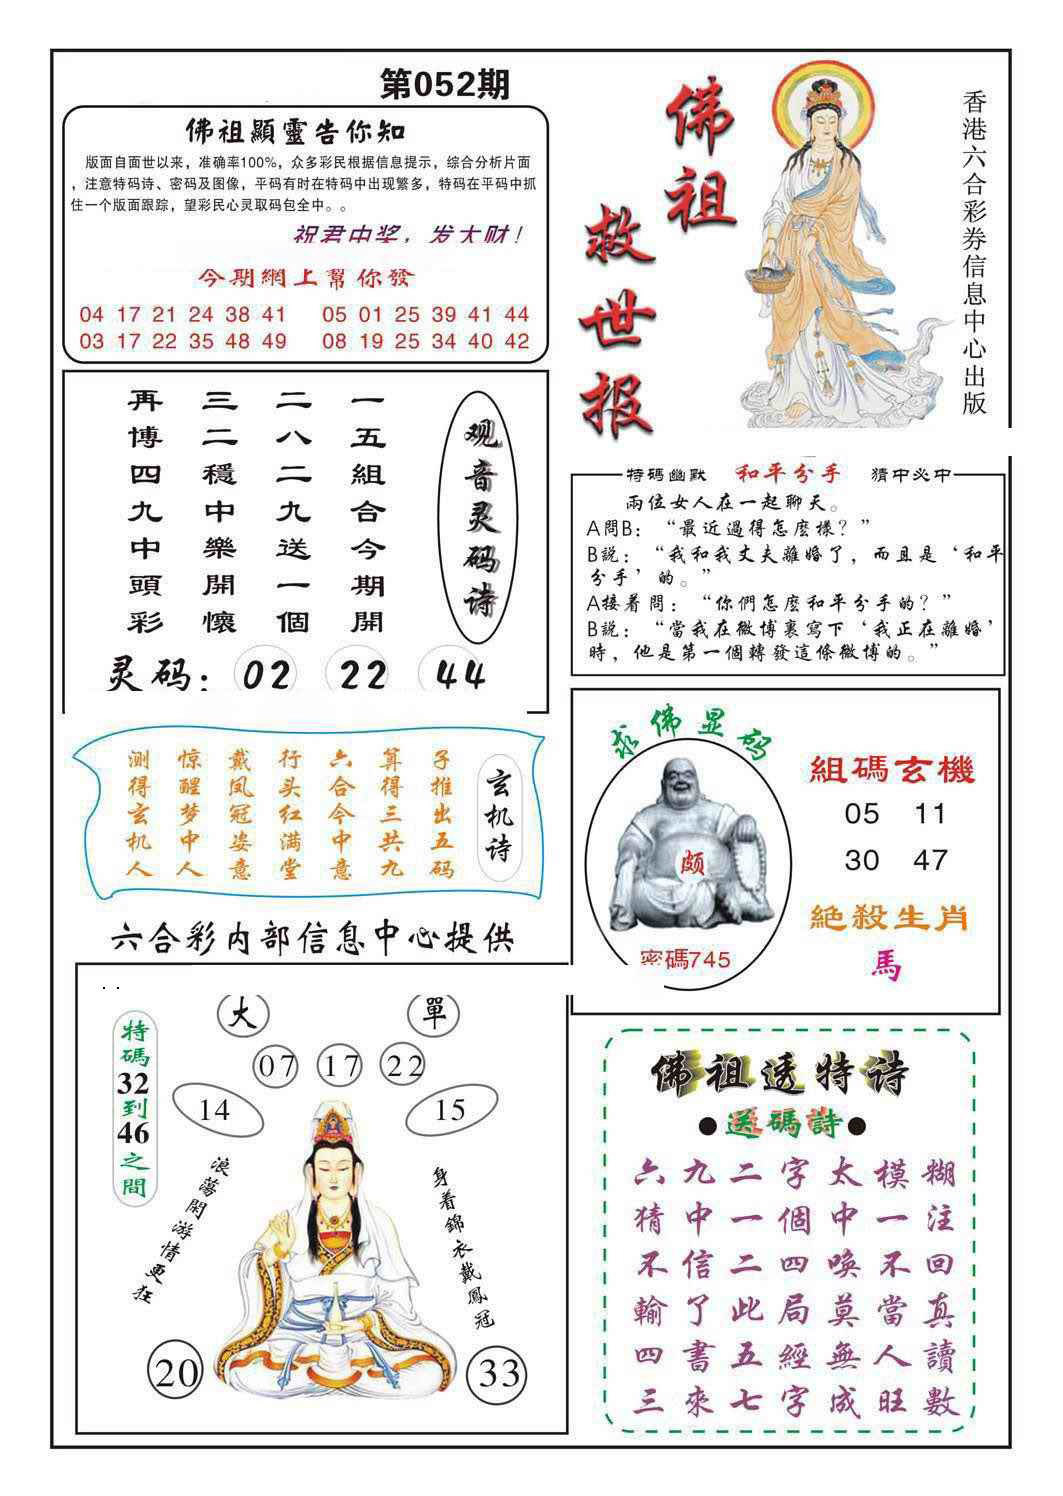 第052期
佛祖顯靈告你知
版面自面世以来，准确率100%，众多彩民根据信息提示，综合分析片面
，注意特码诗、密码及图像，平码有时在特码中出现繁多，特码在平码中抓
住一个版面跟踪，望彩民心灵取码包全中。。
祝君中奖，发大财！
今期網上幫你發
04 17 21 24 38 41 05 01 25 39 41 44
03 17 22 35 48 49 08 19 25 34 40 42
佛祖
救世报
香港六合彩券信息中心出版
观音灵码诗
一五組合今期開
二八二九送一個
三二穩中樂開懷
再博四九中頭彩
灵码：02 22 44
特碼幽默 和平分手 猜中必中
兩位女人在一起聊天。
A問B：“最近過得怎麽樣？”
B説：“我和我丈夫離婚了，而且是‘和平
分手’的。”
A接着問：“你們怎麽和平分手的？”
B説：“當我在微博裏寫下‘我正在離婚’
時，他是第一個轉發這條微博的。”
玄机诗
子推出五码
算得三共九
六合今中意
行头红满堂
戴凤冠姿意
惊醒梦中人
测得玄机人
求佛显码
颇
密碼745
組碼玄機
05 11
30 47
絶殺生肖
馬
六合彩内部信息中心提供
大 單
07 17 22
14 15
特碼32到46之間
浪蕩閑游情更狂
身着錦衣戴鳳冠
20 33
佛祖透特诗
●送碼詩●
六九二字太模糊
猜中一個中一注
不信二四喚不回
輸了此局莫當真
四書五經無人讀
三來七字成旺數